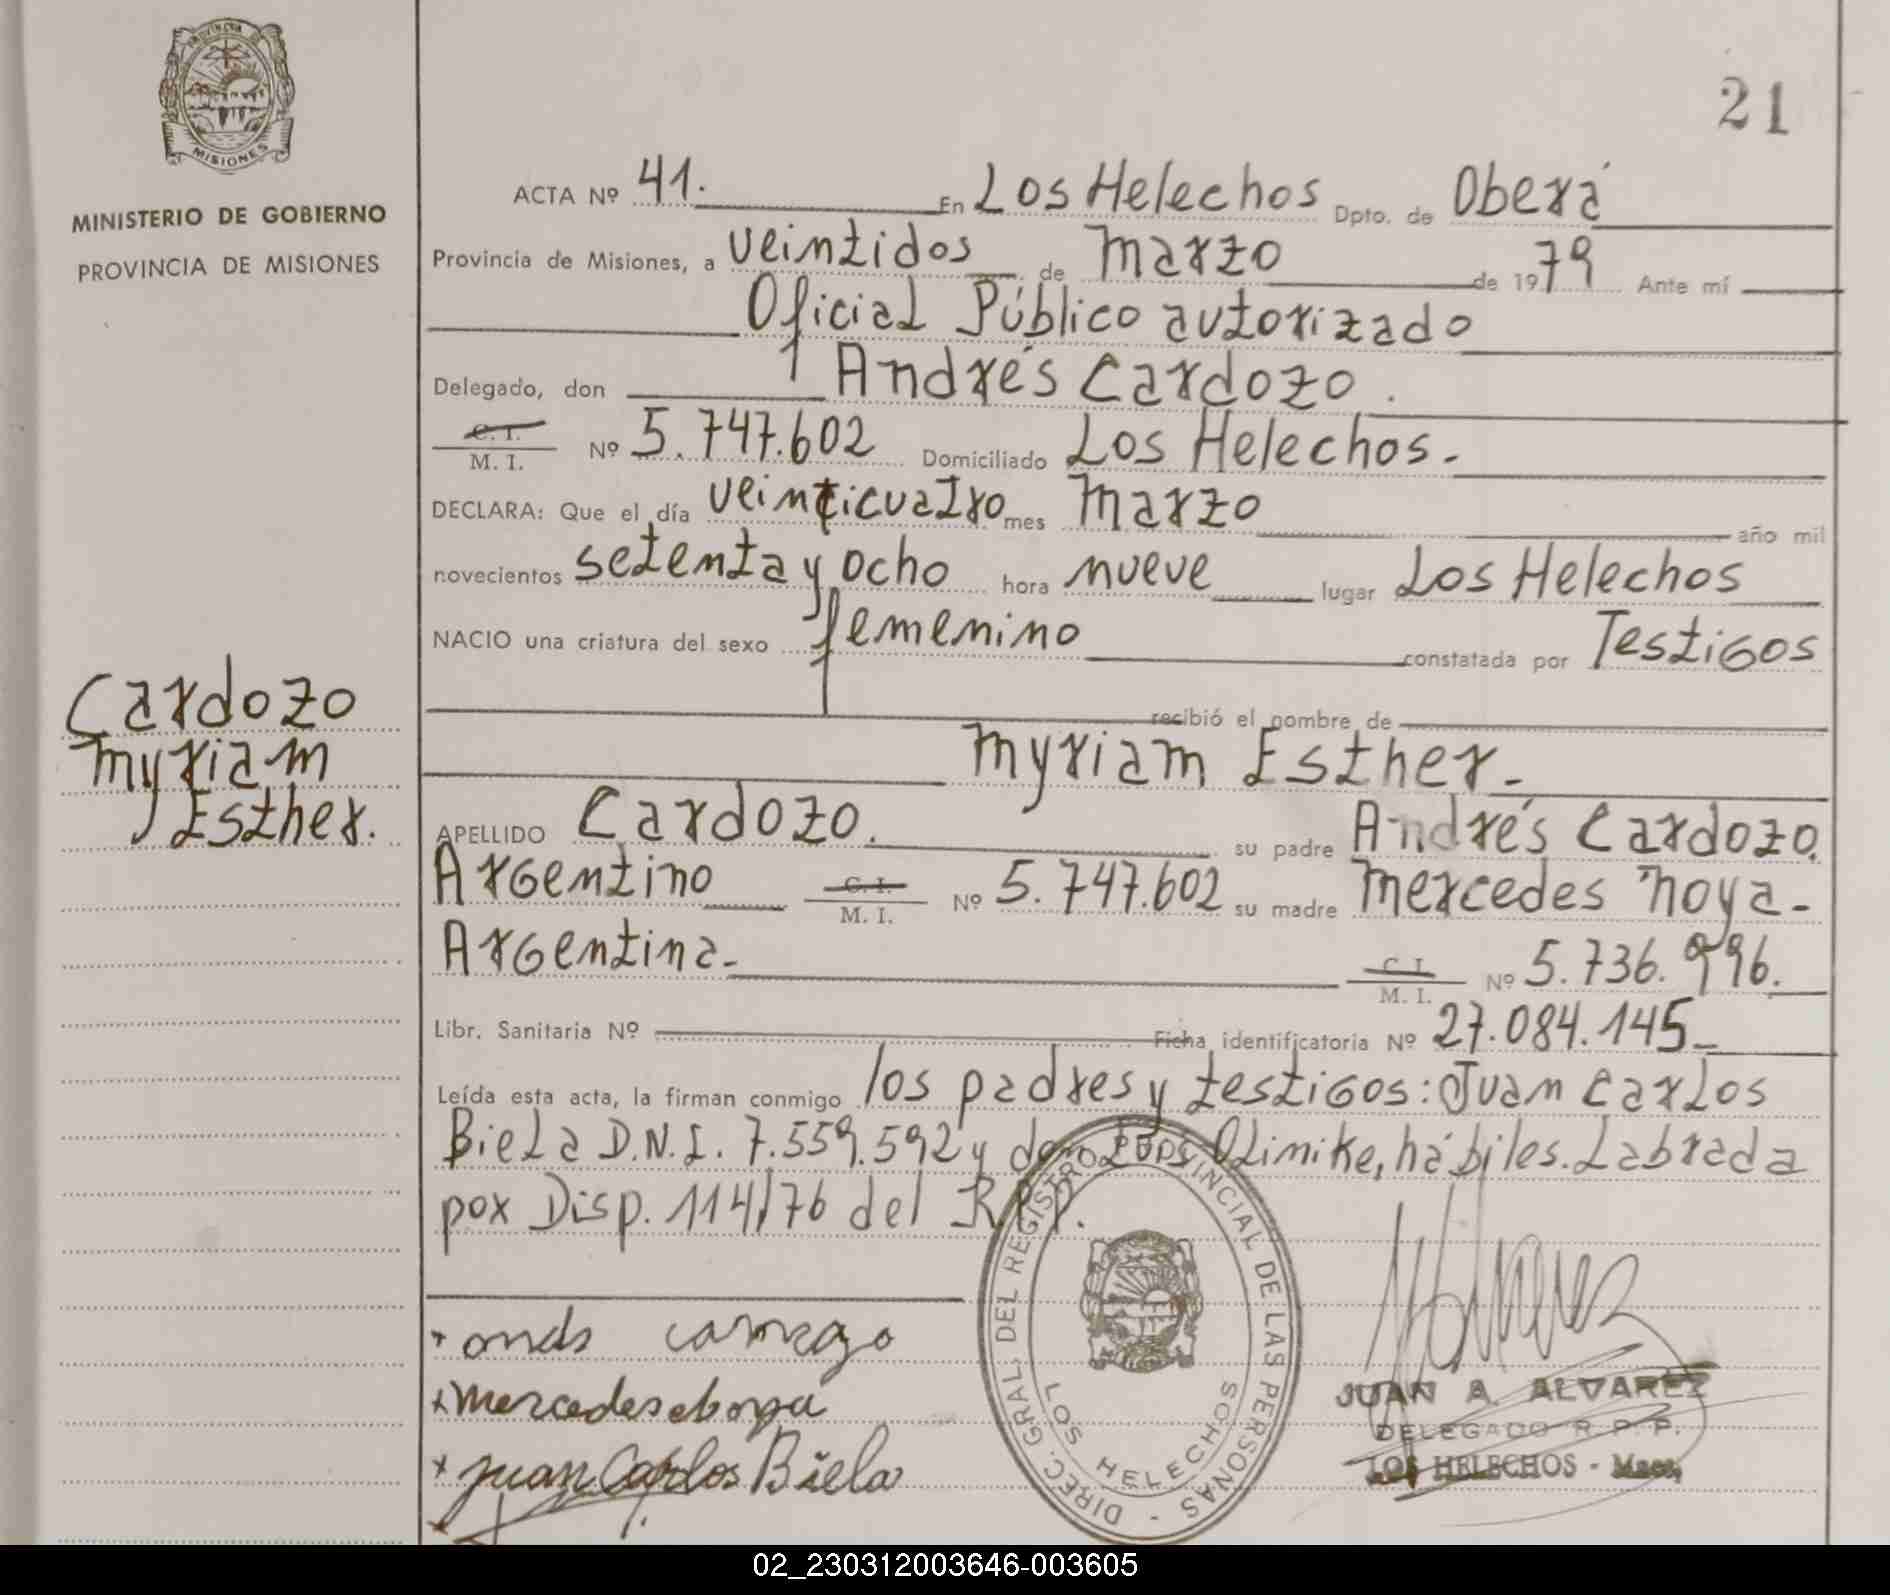 PROVINCIA DE
MISIONES
MINISTERIO DE GOBIERNO
PROVINCIA DE MISIONES
Cardozo
Myriam
Esther.
21
ACTA Nº 41. En Los Helechos Dpto. de Oberá
Provincia de Misiones, a veintidos de Marzo de 1979 Ante mí
Oficial Público autorizado
Delegado, don Andrés Cardozo.
C. I.
M. I. Nº 5.747.602 Domiciliado Los Helechos.-
DECLARA: Que el día veinticuatro mes Marzo año mil
novecientos setenta y ocho hora nueve lugar Los Helechos
NACIO una criatura del sexo femenino constatada por Testigos
recibió el nombre de
Myriam Esther.-
APELLIDO Cardozo. su padre Andrés Cardozo.
Argentino C. I.
M. I. Nº 5.747.602 su madre Mercedes Noya-
Argentina- C. I.
M. I. Nº 5.736.996.
Libr. Sanitaria Nº Ficha identificatoria Nº 27.084.145-
Leída esta acta, la firman conmigo los padres y testigos: Juan Carlos
Biela D.N.I. 7.559.592 y don Olimike, hábiles. Labrada
por Disp. 114/76 del R.P.P.
Mercedes
Juan Carlos Biela
DIREC. GRAL. DEL REGISTRO PROVINCIAL DE LAS PERSONAS -
LOS HELECHOS
JUAN A. ALVAREZ
DELEGADO R. P. P.
LOS HELECHOS - Mnes.
02_230312003646-003605